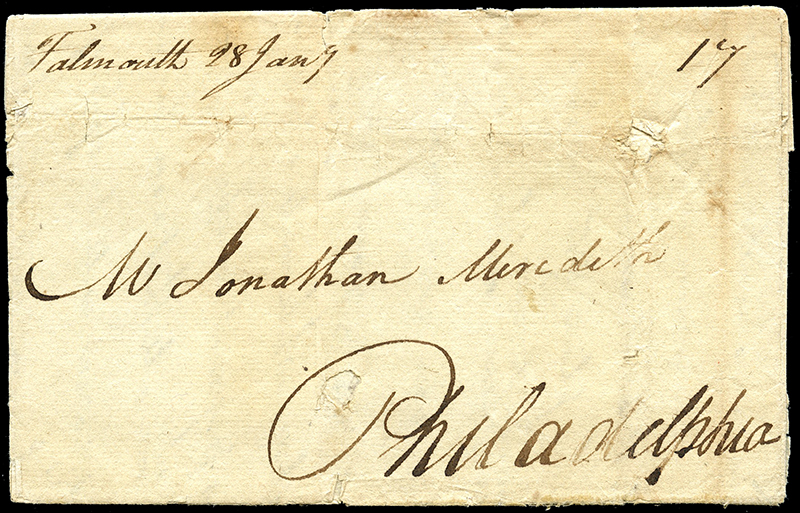 Falmouth 28 Jany 17
Mr Jonathan Meredith
Philadelphia